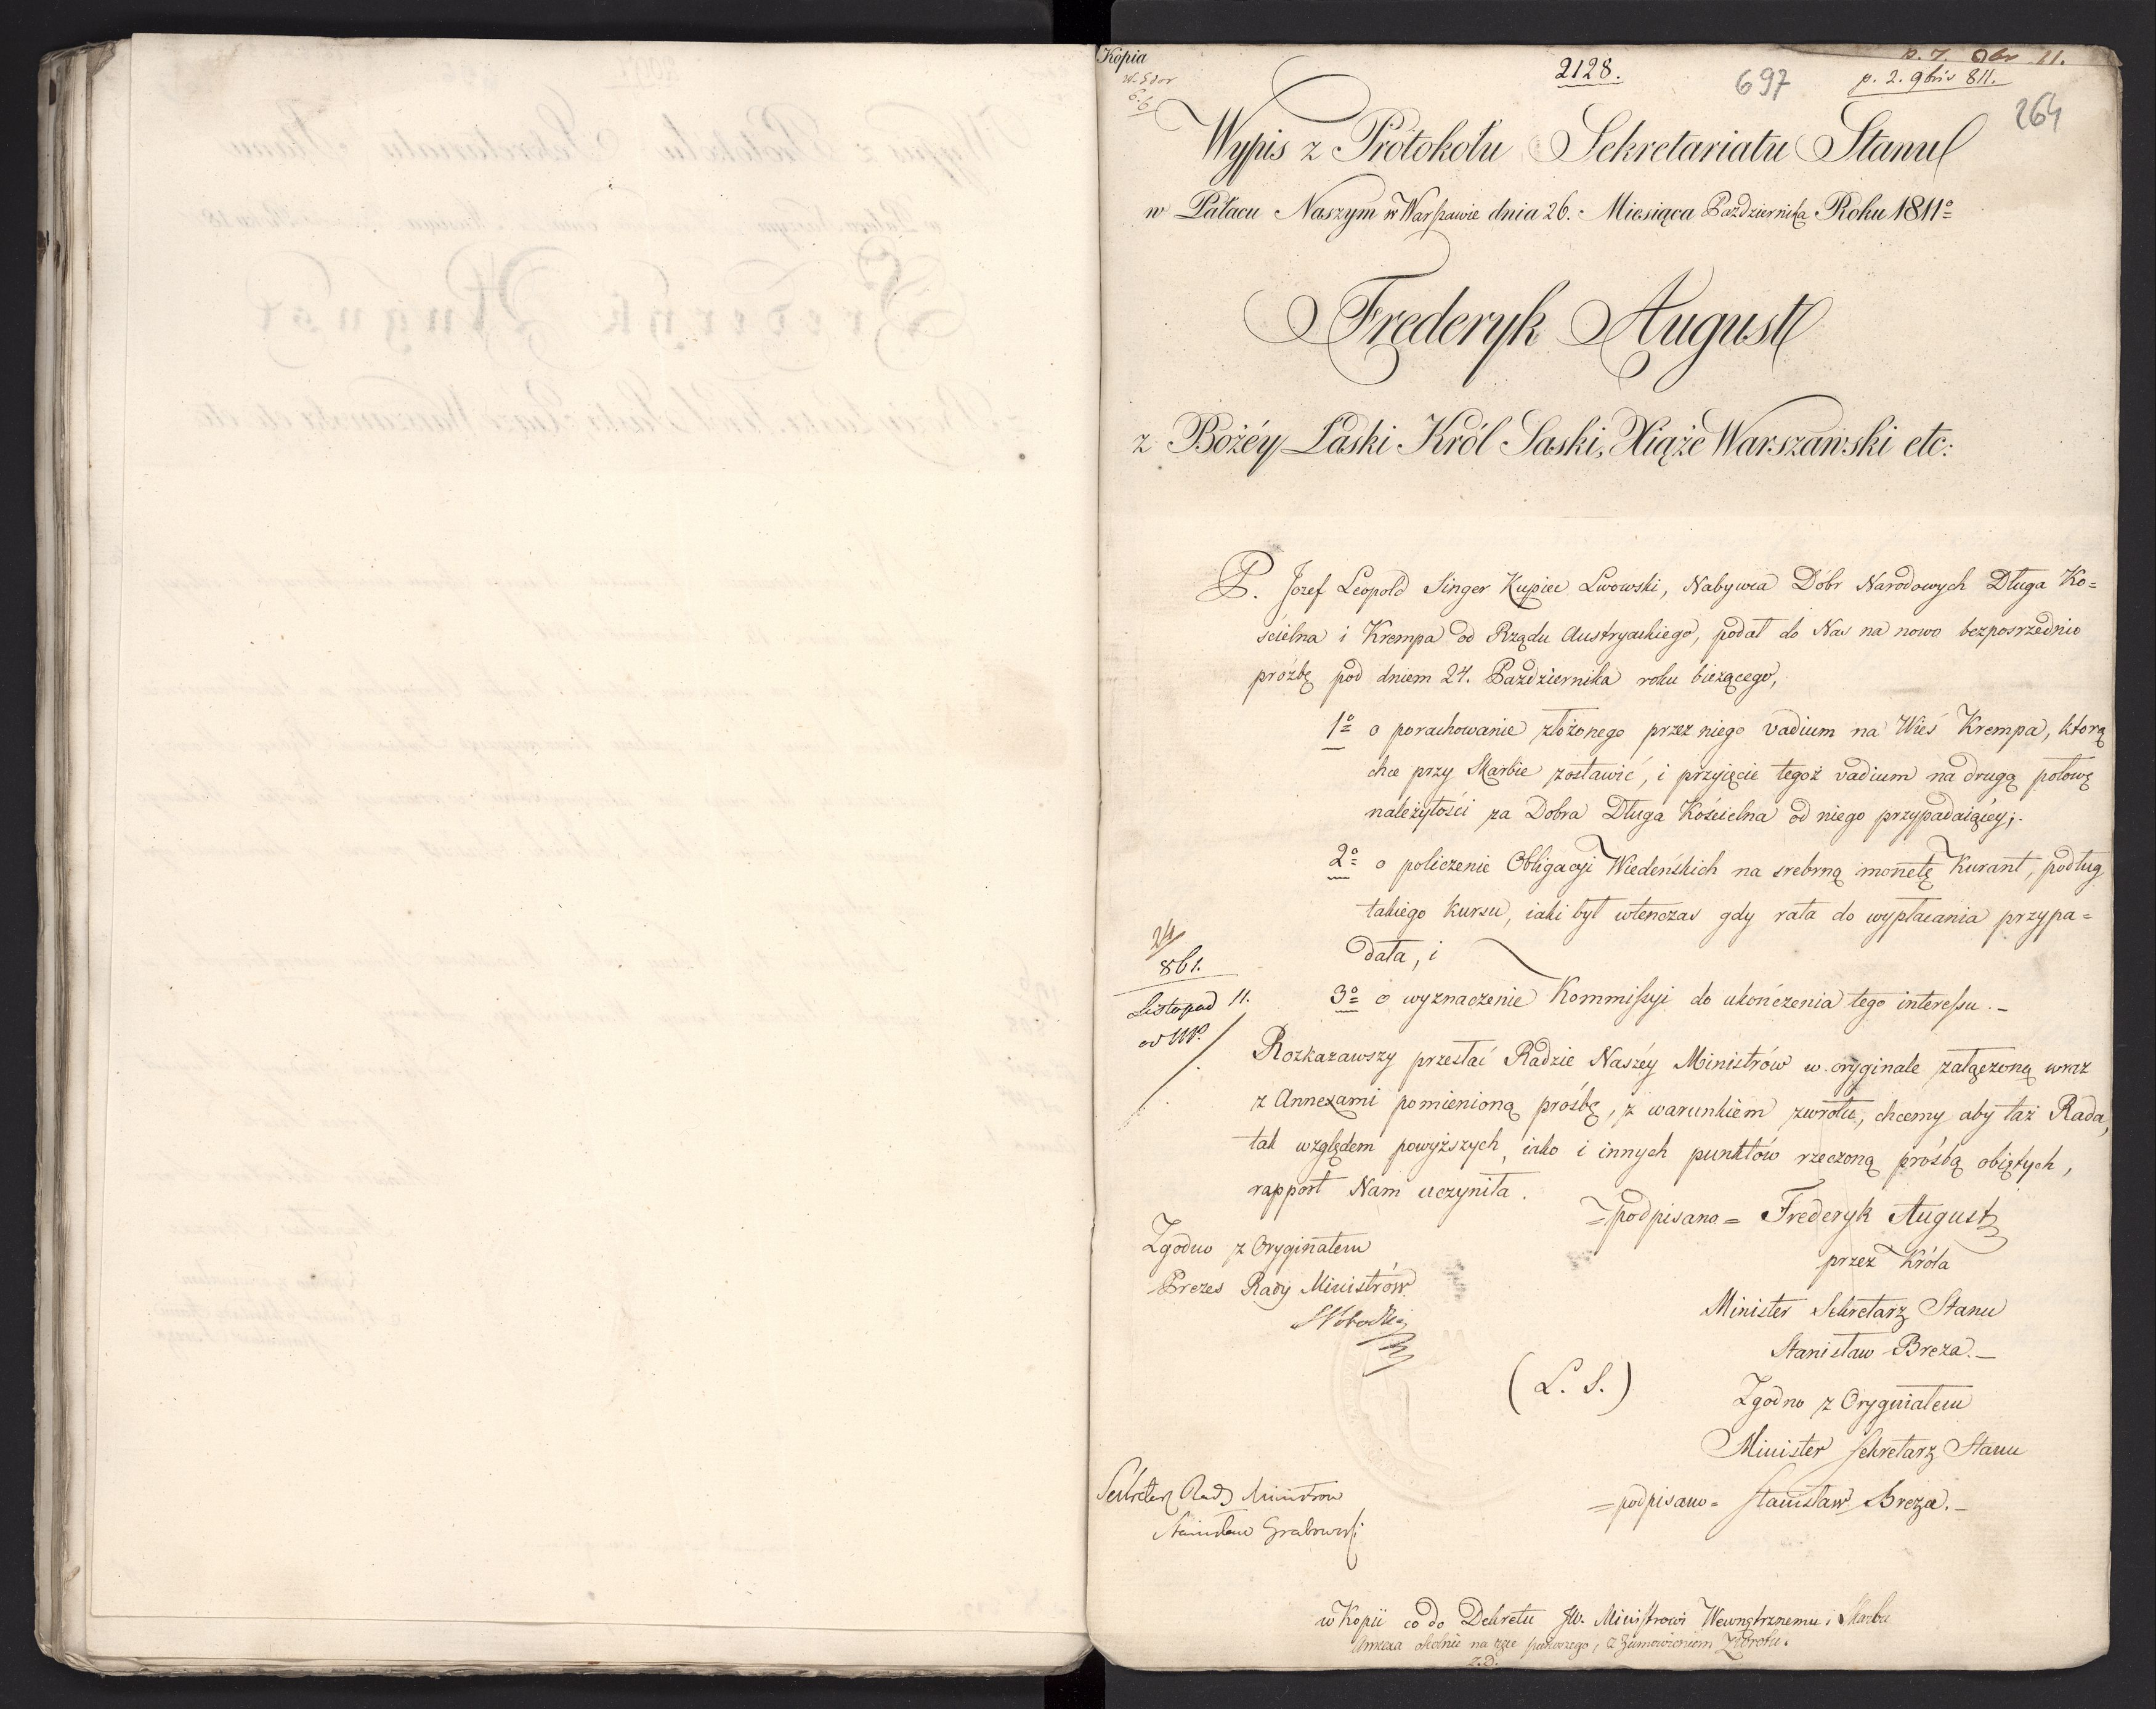 Kopia
2128.
697
p. 2. 9bris 811.
264
Wypis z Protokołu Sekretariatu Stanu
w Pałacu Naszym w Warszawie dnia 26. Miesiąca Października Roku 1811º
Frederyk August
z Bożéy Łaski Król Saski, Xiąże Warszawski etc:
P. Jozef Leopold Singer Kupiec Lwowski, Nabywca Dobr Narodowych Długa Ko=
ścielna i Krempa od Rządu Austryackiego, podał do Nas na nowo bezposrzednio
prożbę pod dniem 24. Października roku bieżącego,
1º o porachowanie złożonego przez niego vadium na Wieś Krempa, ktorą
chce przy Skarbie zostawić, i przyięcie tegoż vadium na drugą połowę
należytości za Dobra Długa Kościelna od niego przypadaiącéy;
2º o policzenie Obligacyi Wiedeńskich na srebrną monetę Kurant, podług
takiego kursu, iaki był wtenczas gdy rata do wypłacania przypa=
dała, i
3º o wyznaczenie Kommissyi do ukończenia tego interessu. –
24
861.
Listopad 11.
Rozkazawszy przesłać Radzie Naszéy Ministrów w oryginale załączoną wraz
z Annexami pomienioną prośbę, z warunkiem zwrotu, chcemy aby taż Rada,
tak względem powyższych, iako i innych punktów rzeczoną prośbą obiętych,
rapport Nam uczyniła.
=podpisano= Frederyk August
przez Króla
Minister Sekretarz Stanu
Stanisław Breza. –
Zgodno z Oryginałem
Prezes Rady Ministrów
(L. S.)
Zgodno z Oryginałem
Minister Sekretarz Stanu
=podpisano= Stanisław Breza. –
Sekretarz Rady Ministrow
Stanisław Grabowski
w Kopii co do Dekretu JW. Ministrowi Wewnętrznemu i Skarbu